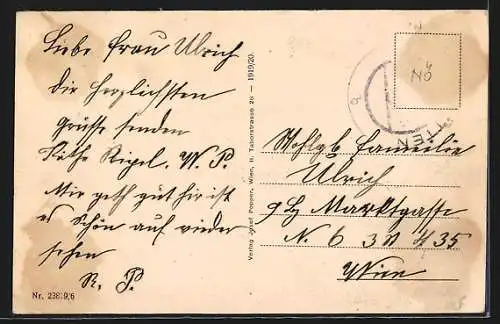 Liebe Frau Ulrich
die herzlichsten
Grüsse senden
Käthe Rigel. W. P.
Mir geth gut hir ist
es schön auf wieder
sehen
R. P.
Nr. 23819/6
Verlag Josef Popper, Wien, II. Taborstrasse 26 — 1919/20.
NÖ
TTEN
Wohlgb Familie
Ulrich
Marktgasse
N. 6 35
Wien